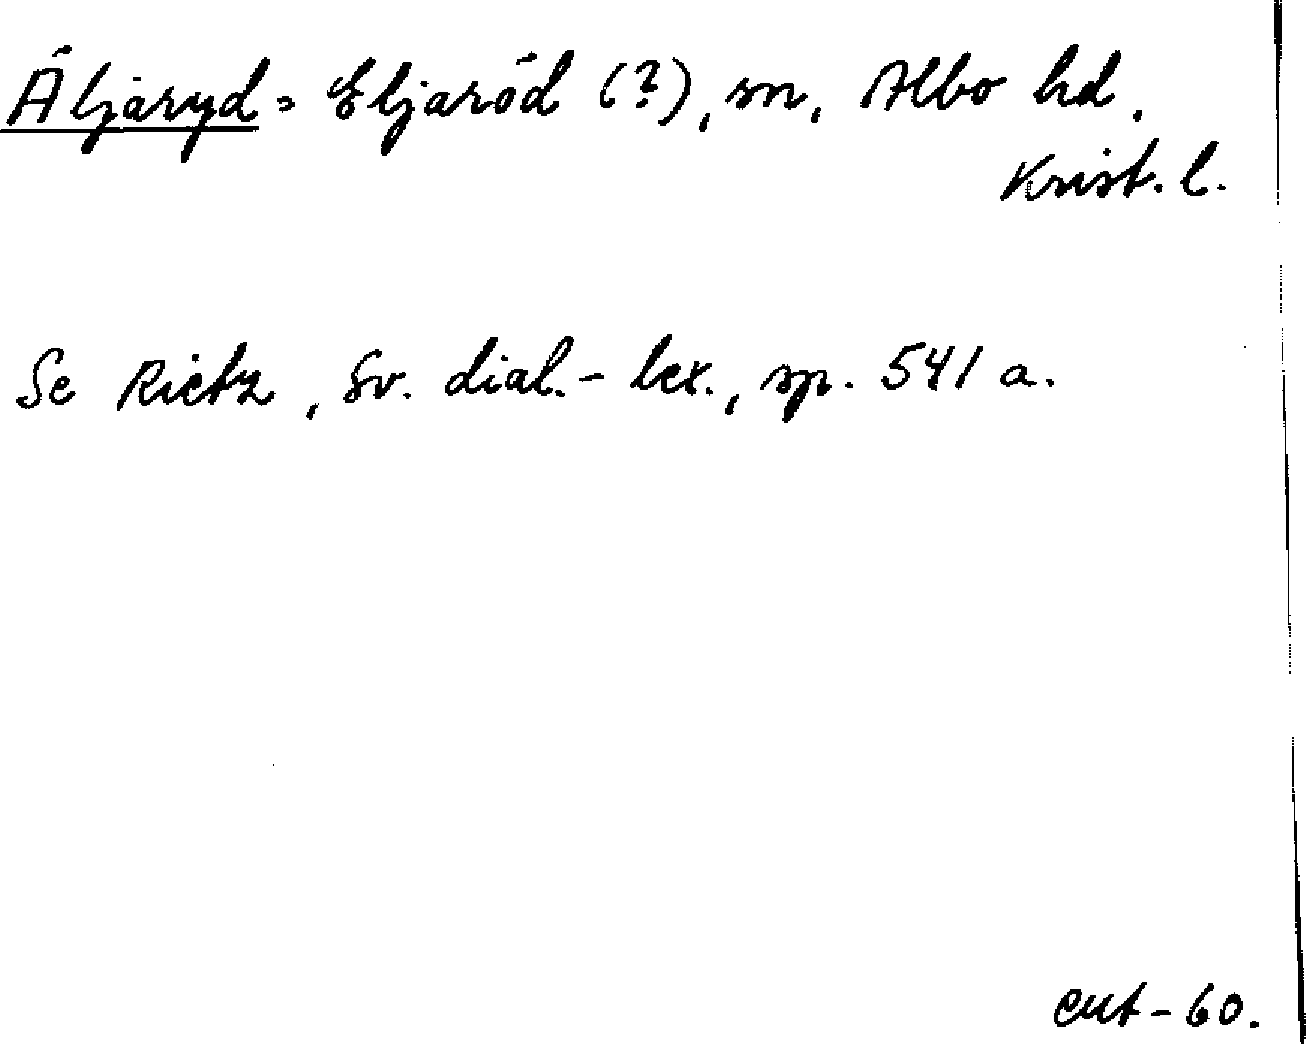 Äljaryd = Eljaröd (?), sn, Albo hd.
Krist. l.
Se Rietz, Sv. dial.-lex., sp. 541 a.
CMt-60.